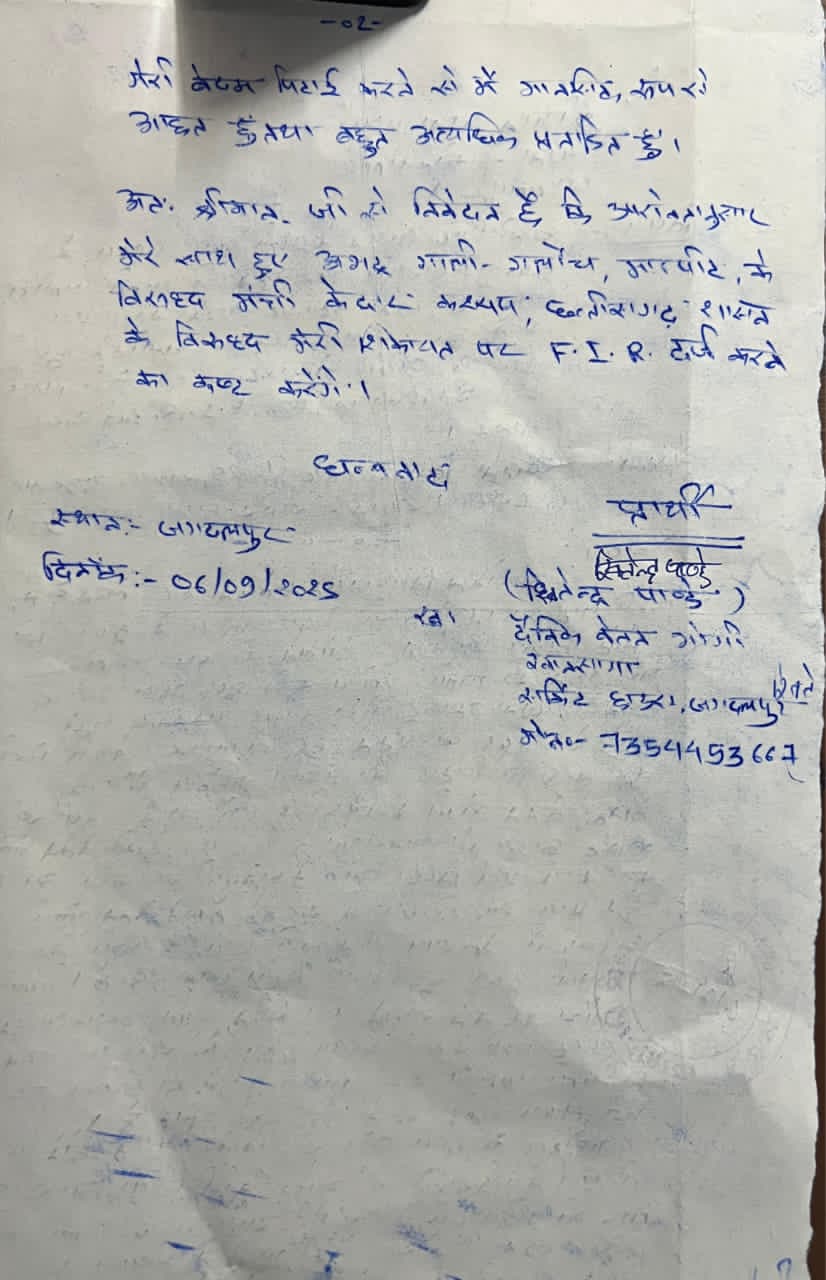 -02-
मेरी बेदम पिटाई करने से मैं मानसिक, रूप से
आहत हूं तथा बहुत अत्यधिक प्रताड़ित हूं।
अतः श्रीमान जी से निवेदन है कि आवेदनानुसार
मेरे साथ हुए अभद्र गाली-गलौच, मारपीट, के
विरुध्द मंत्री केदार कश्यप, छत्तीसगढ़ शासन
के विरुध्द मेरी शिकायत पर F.I.R. दर्ज करने
का कष्ट करेंगे।
धन्यवाद
स्थान:- जगदलपुर
प्रार्थी
दिनाँक:- 06/09/2025
(खितेन्द्र पाण्डे)
दैनिक वेतन भोगी
खानसामा
सर्किट हाउस, जगदलपुर
मो.नं०- 7354453667